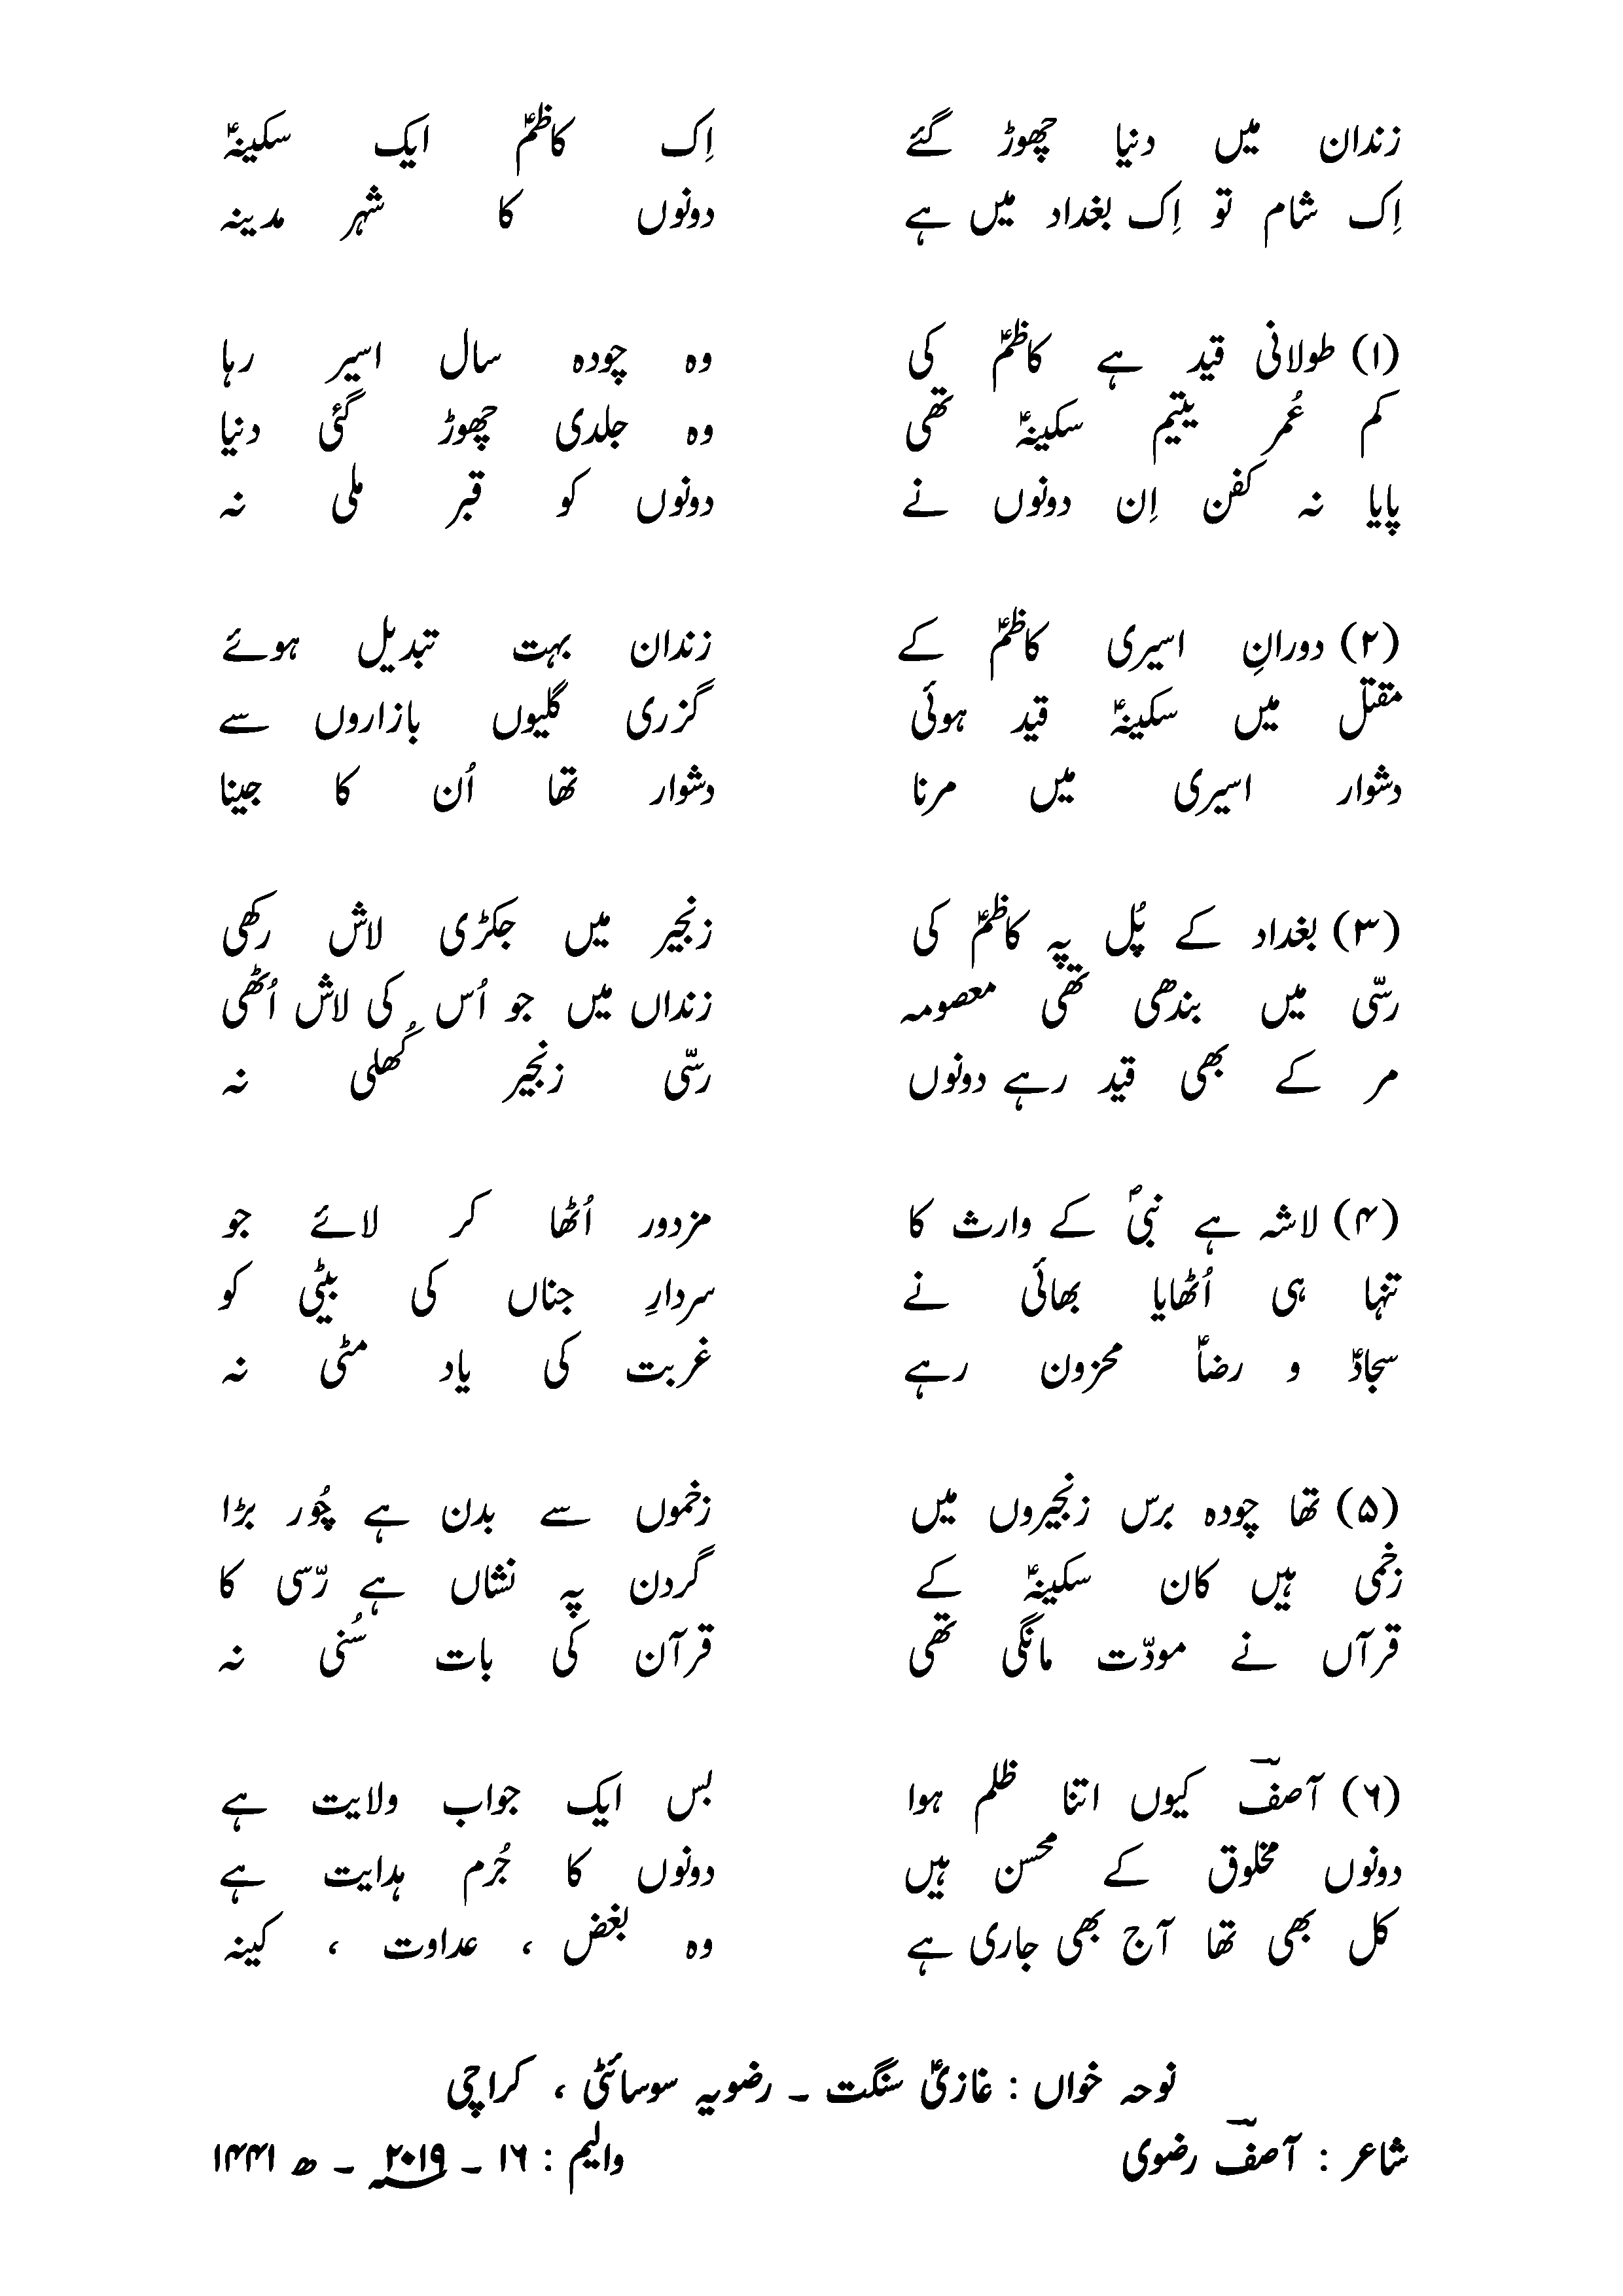 زندان میں دنیا چھوڑ گئے اِک کاظمؑ ایک سکینہؑ
اِک شام تو اِک بغداد میں ہے دونوں کا شہر مدینہ
(۱) طولانی قید ہے کاظمؑ کی وہ چودہ سال اسیر رہا
کم عُمر یتیم سکینہؑ تھی وہ جلدی چھوڑ گئی دنیا
پایا نہ کفن اِن دونوں نے دونوں کو قبر ملی نہ
(۲) دورانِ اسیری کاظمؑ کے زندان بہت تبدیل ہوئے
مقتل میں سکینہؑ قید ہوئی گزری گلیوں بازاروں سے
دشوار اسیری میں مرنا دشوار تھا اُن کا جینا
(۳) بغداد کے پُل پہ کاظمؑ کی زنجیر میں جکڑی لاش رکھی
رسّی میں بندھی تھی معصومہ زنداں میں جو اُس کی لاش اُٹھی
مر کے بھی قید رہے دونوں رسّی زنجیر کُھلی نہ
(۴) لاشہ ہے نبیؐ کے وارث کا مزدور اُٹھا کر لائے جو
تنہا ہی اُٹھایا بھائی نے سردارِ جناں کی بیٹی کو
سجادؑ و رضاؑ محزون رہے غربت کی یاد مٹی نہ
(۵) تھا چودہ برس زنجیروں میں زخموں سے بدن ہے چُور بڑا
زخمی ہیں کان سکینہؑ کے گردن پہ نشاں ہے رّسی کا
قرآں نے مودّت مانگی تھی قرآن کی بات سُنی نہ
(۶) آصفؔ کیوں اتنا ظلم ہوا بس ایک جواب ولایت ہے
دونوں مخلوق کے محسن ہیں دونوں کا جُرم ہدایت ہے
کل بھی تھا آج بھی جاری ہے وہ بغض ، عداوت ، کینہ
نوحہ خواں : غازیؑ سنگت ۔ رضویہ سوسائٹی ، کراچی
شاعر : آصفؔ رضوی والیم : ۱۶ ۔ ۲۰۱۹؁ ۔ ھ ۱۴۴۱